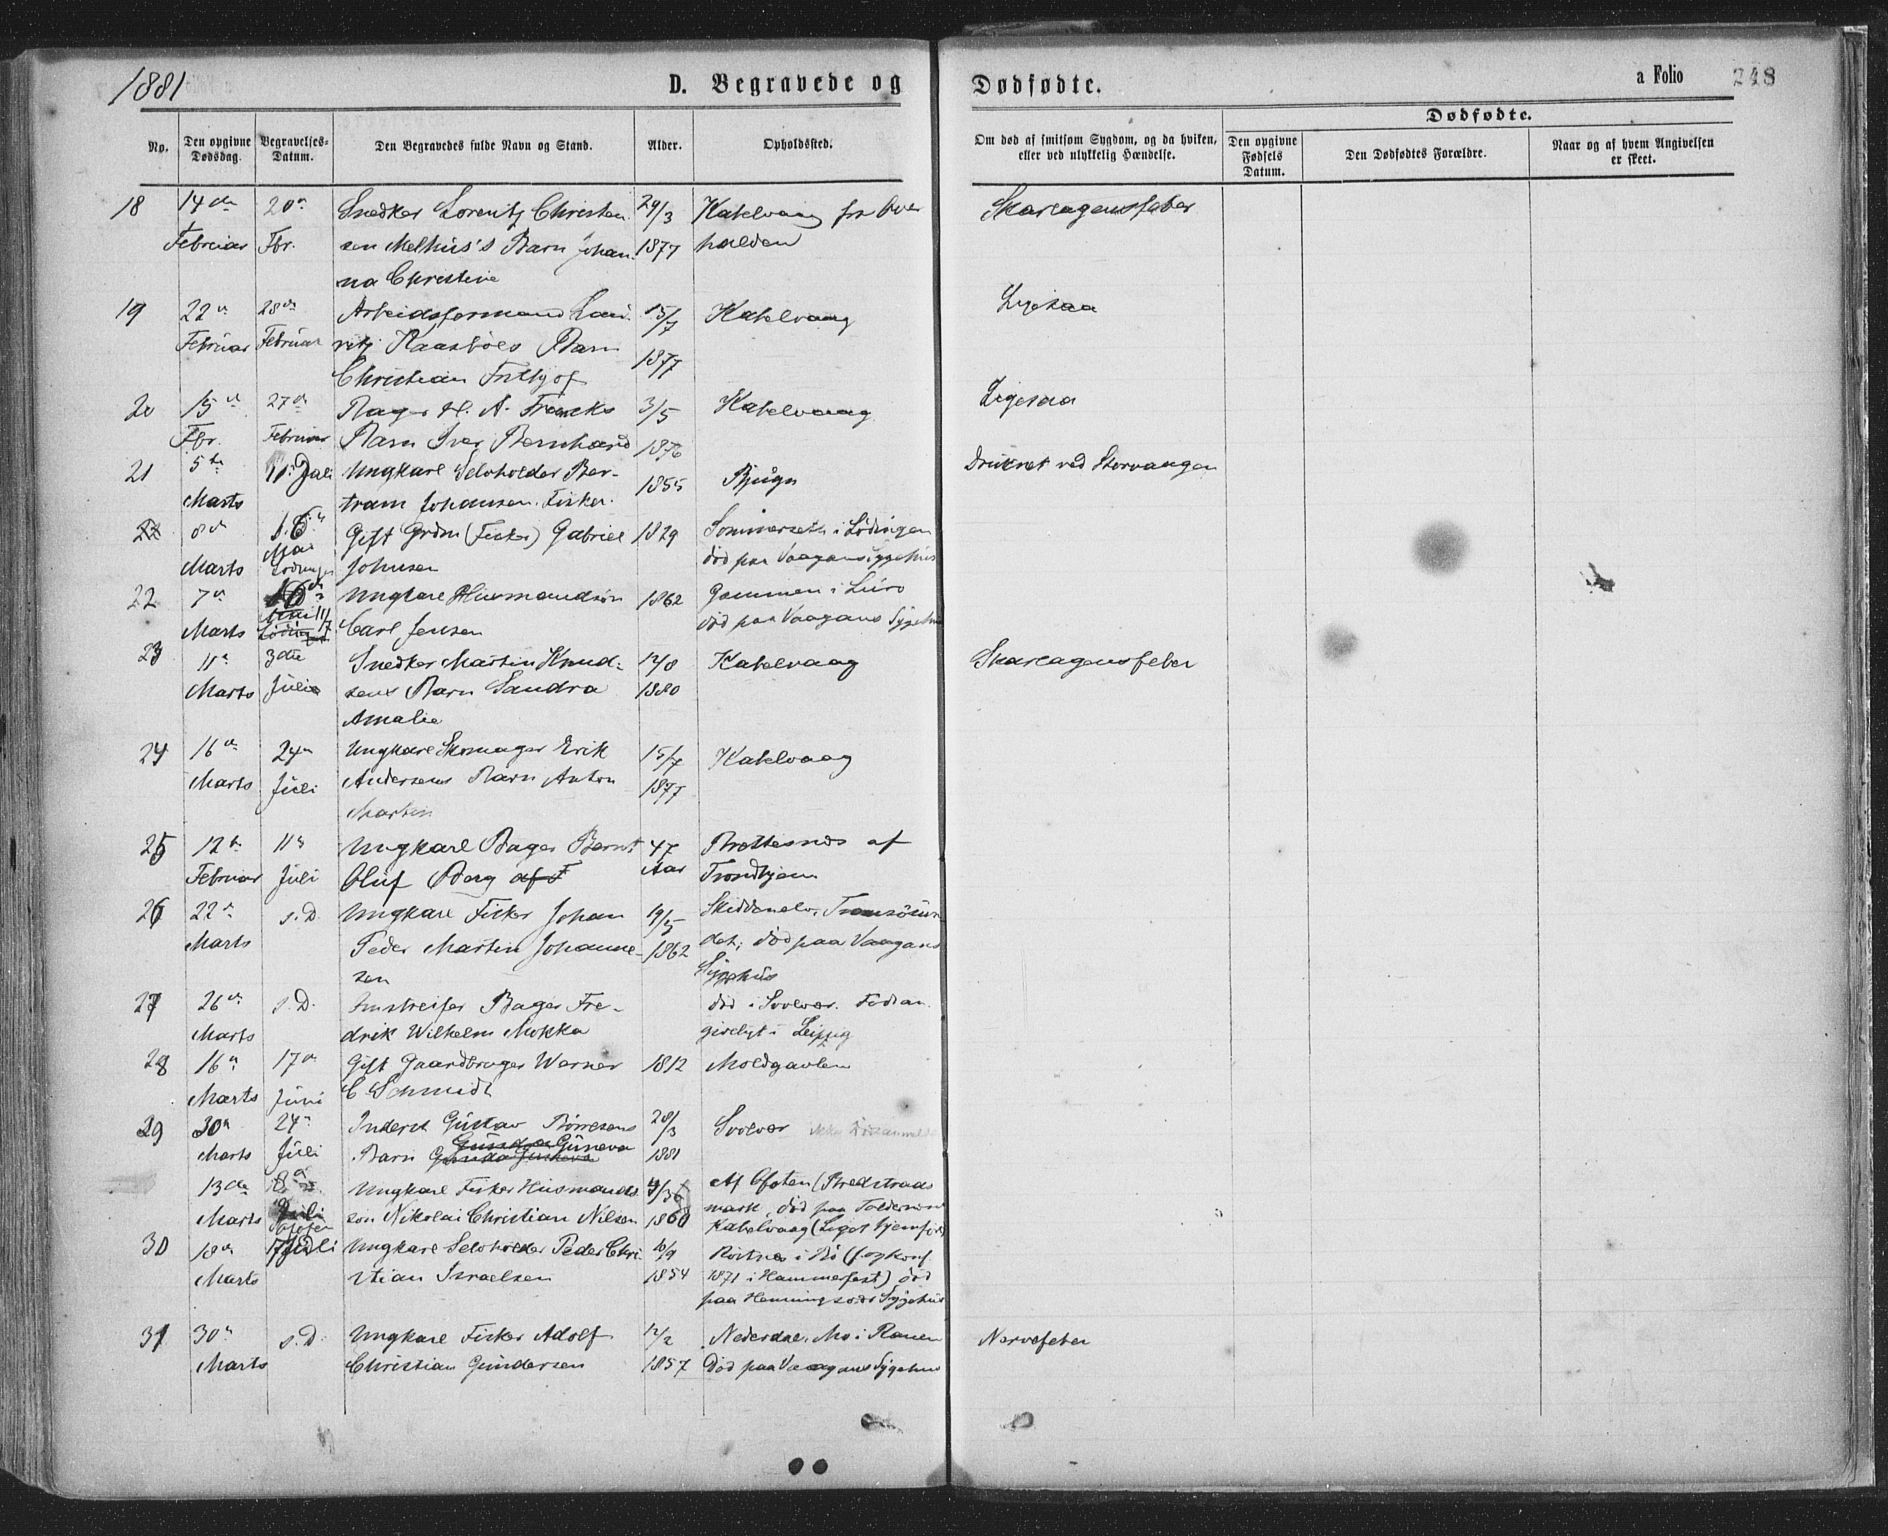 1881
D. Begravede og Dødfødte.
a Folio 248
No.
Den opgivne Dødsdag.
Begravelses-Datum.
Den Begravedes fulde Navn og Stand.
Alder.
Opholdssted.
Om død af smitsom Sygdom, og da hvilken, eller ved ulykkelig Hændelse.
Dødfødte.
Den opgivne Fødsels Datum.
Den Dødfødtes Forældre.
Naar og af hvem Angivelsen er skeet.
18 14de 20de Snedker Lorentz Christen 29/3 Kabelvaag fra Over Skarlagensfeber
Februar Fbr. sen Melhus's Barn Johan 1877 halden
na Christine
19 22de 28de Arbeidsformand Lau 15/7 Kabelvaag Ligesaa
Februar Februar ritz Kaasbøls Barn 1877
Christian Fritkjof
20 15de 27de Bager H. A. Francks 3/5 Kabelvaag Ligesaa
Fbr. Februar Barn Iver Bernhard 1876
21 5te 10de Juli Ungkarl Selvholder Ber- 1855 Bjugn Druknet ved Storvaagen
Marts tram Johansen. Fisker.
22 8de 15de Gift Grdm (Fisker) Gabriel 1829 Sommerseth i Lødingen
Marts Mai Lødingen Johnsen død paa Vaagans Sygehus
22 7de Ungkarl Husmandsøn 1862 Gommen i Lurø
Marts 11/7 Carl Jensen død paa Vaagans Sygehus
23 11te 3die Snedker Martin Knud- 12/8 Kabelvaag Skarlagensfeber
Marts Juli sens Barn Sandra 1880
Amalie
24 16de 24de Ungkarl Skomager Erik 15/7 Kabelvaag
Marts Juli Andersens Barn Anton 1877
Martin
25 12te 11te Ungkarl Bager Bernt 47 Brettesnes af
Februar Juli Oluf Berg af F Aar Trondhjem
26 22de s.D. Ungkarl Fisker Johan 19/5 Skiddenelv, Tromsøsun
Marts Peder Martin Johanne- 1862 det; død paa Vaagans
sen Sygehus
27 26de s.D. Omstreifer Bager Fre- død i Svolvær. Født an
Marts drik Wilhelm Mokka giveligt i Leipzig
28 16de 17de Gift Gaardbruger Werner 1812 Moldgavlen
Marts Juni C Schmidt
29 30de 24de Inderst Gustav Børresens 28/3 Svolvær
Marts Juli Barn Gunda Gustava 1881
13de 8de Ungkarl Fisker Husmands Af Ofoten (Bredstrands
Marts Juli Ofoten søn Nikolai Christian Nilsen 1860 mark, død paa
Kabelvaag (Liget hjemført)
30 18de 17 Juli Ungkarl Selvholder Peder Chri 10/9 i Bø (og konf
Marts stian Israelsen 1854 1871 i Hammerfest) død
paa Henningsvær Sygehus
31 30te s.D. Ungkarl Fisker Adolf 12/2 Nederdal, Mo i Ranen Nervefeber
Marts Christian Gundersen 1857 Død paa Vaagans Sygehus